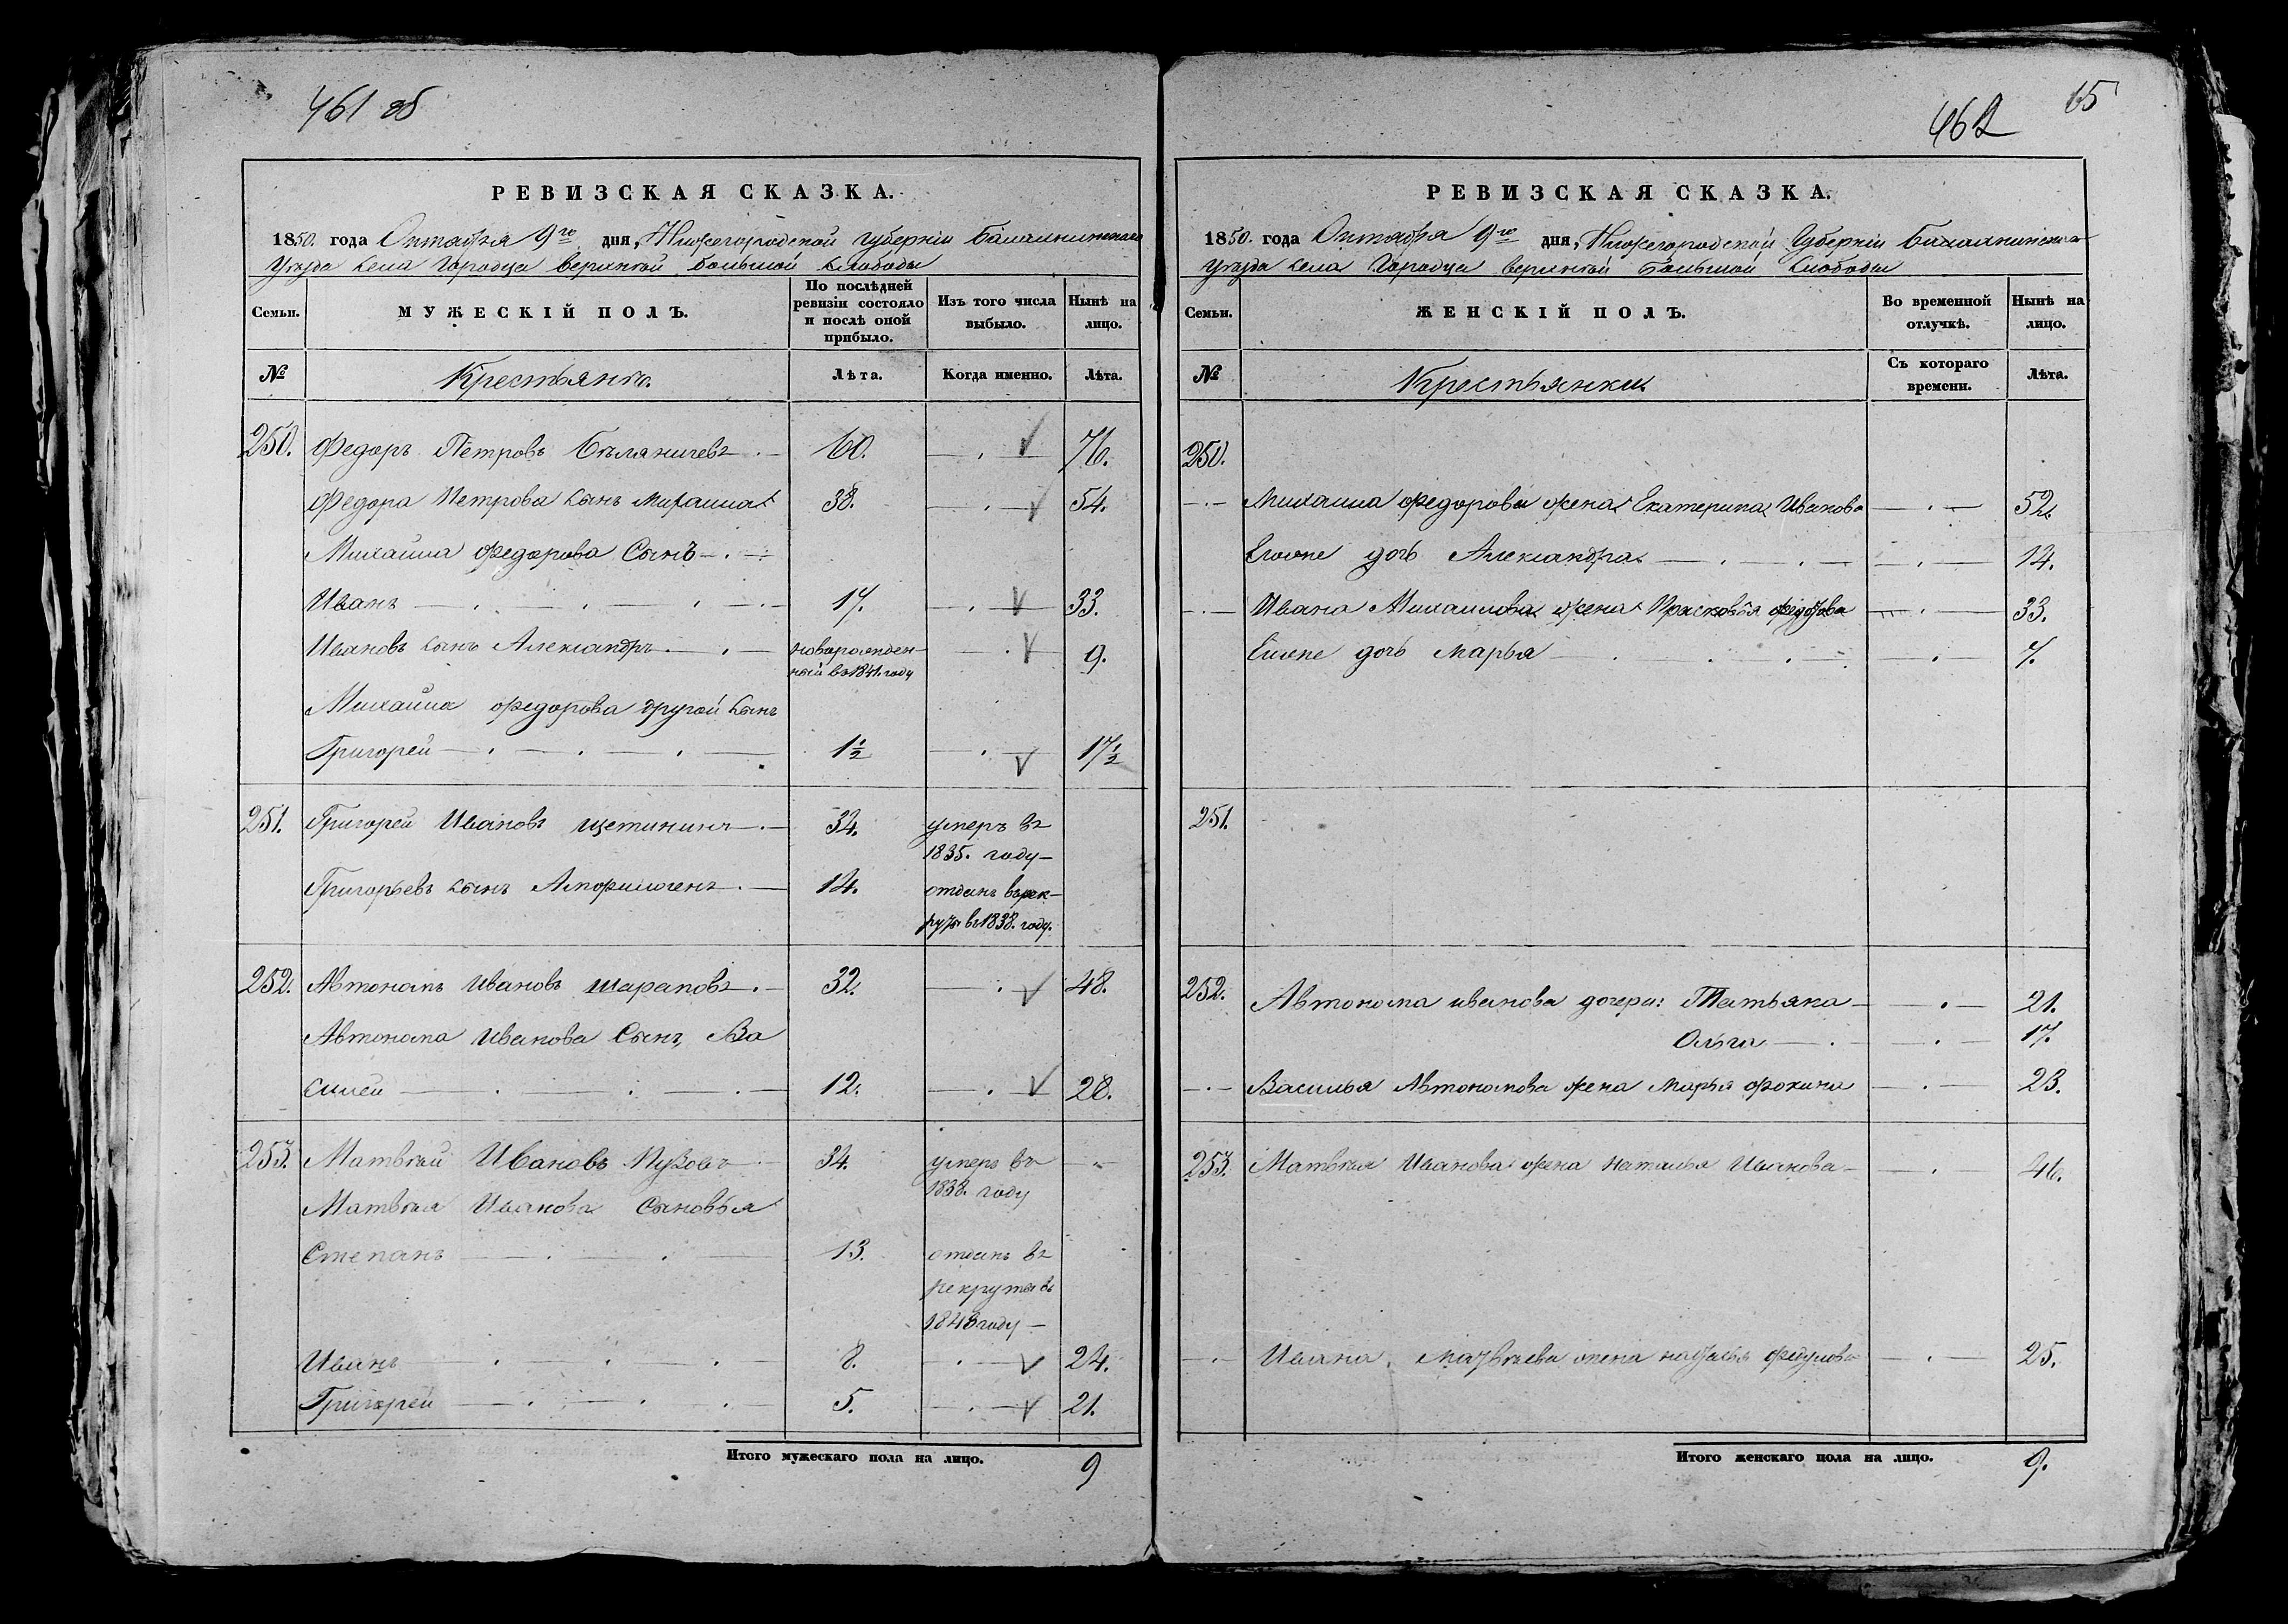 461 об
РЕВИЗСКАЯ СКАЗКА.
1850. года Октября 9го дня, Нижегородской губерніи Балахнинскаго
Уѣзда села Городца верхней большой слободы
Семьи.
МУЖЕСКІЙ ПОЛЪ.
По послѣдней ревизіи состояло и послѣ оной прибыло.
Изъ того числа выбыло.
Нынѣ на лицо.
№
Крестьяне.
Лѣта.
Когда именно.
Лѣта.
250. Федоръ Петровъ 60. 76.
Федора Петрова сынъ Михаила 38. 54.
Михайла Федорова Сынъ
Иванъ 17. 33.
Ивановъ сынъ Александръ новорожден- 9.
ной въ 1841. году
Михайла Федорова другой сынъ
Григорей 1½ 17½
251. Григорей Ивановъ щетининъ 34. умеръ въ
1835. году
Григорьевъ сынъ 14. отданъ въ рек-
руты въ 1838. году.
252. Автономъ Ивановъ шараповъ 32. 48.
Автонома Иванова Сынъ, Ва
силей 12. 28.
253. Матвѣй Ивановъ Пузовъ 34. умеръ въ
1838. году
Матвѣя Иванова Сыновья
Степанъ 13. отданъ въ
рекруты въ
1843 году
Иванъ 8. 24.
Григорей 5. 21.
Итого мужескаго пола на лицо. 9
462 65
РЕВИЗСКАЯ СКАЗКА.
1850. года Октября 9го дня, Нижегородской Губерніи Балахнинскаго
уѣзда села Городца верхней большой слободы
Семьи.
ЖЕНСКІЙ ПОЛЪ.
Во временной отлучкѣ.
Нынѣ на лицо.
№
Крестьянки
Съ котораго времени.
Лѣта.
250.
Михаила Федорова жена Екатерина Иванова 52.
Егоже дочь Александра 14.
Ивана Михаилова жена Прасковья Федорова 33.
Егоже дочь Марья 7.
251.
252. Автонома иванова дочери: Татьяна 21.
Ольга 17.
Василья Автономова жена Марья Фокина 23.
253. Матвѣя Иванова жена Наталья Иванова 46.
Ивана Матвѣева жена наталья Федулова 25.
Итого женскаго пола на лицо. 9.